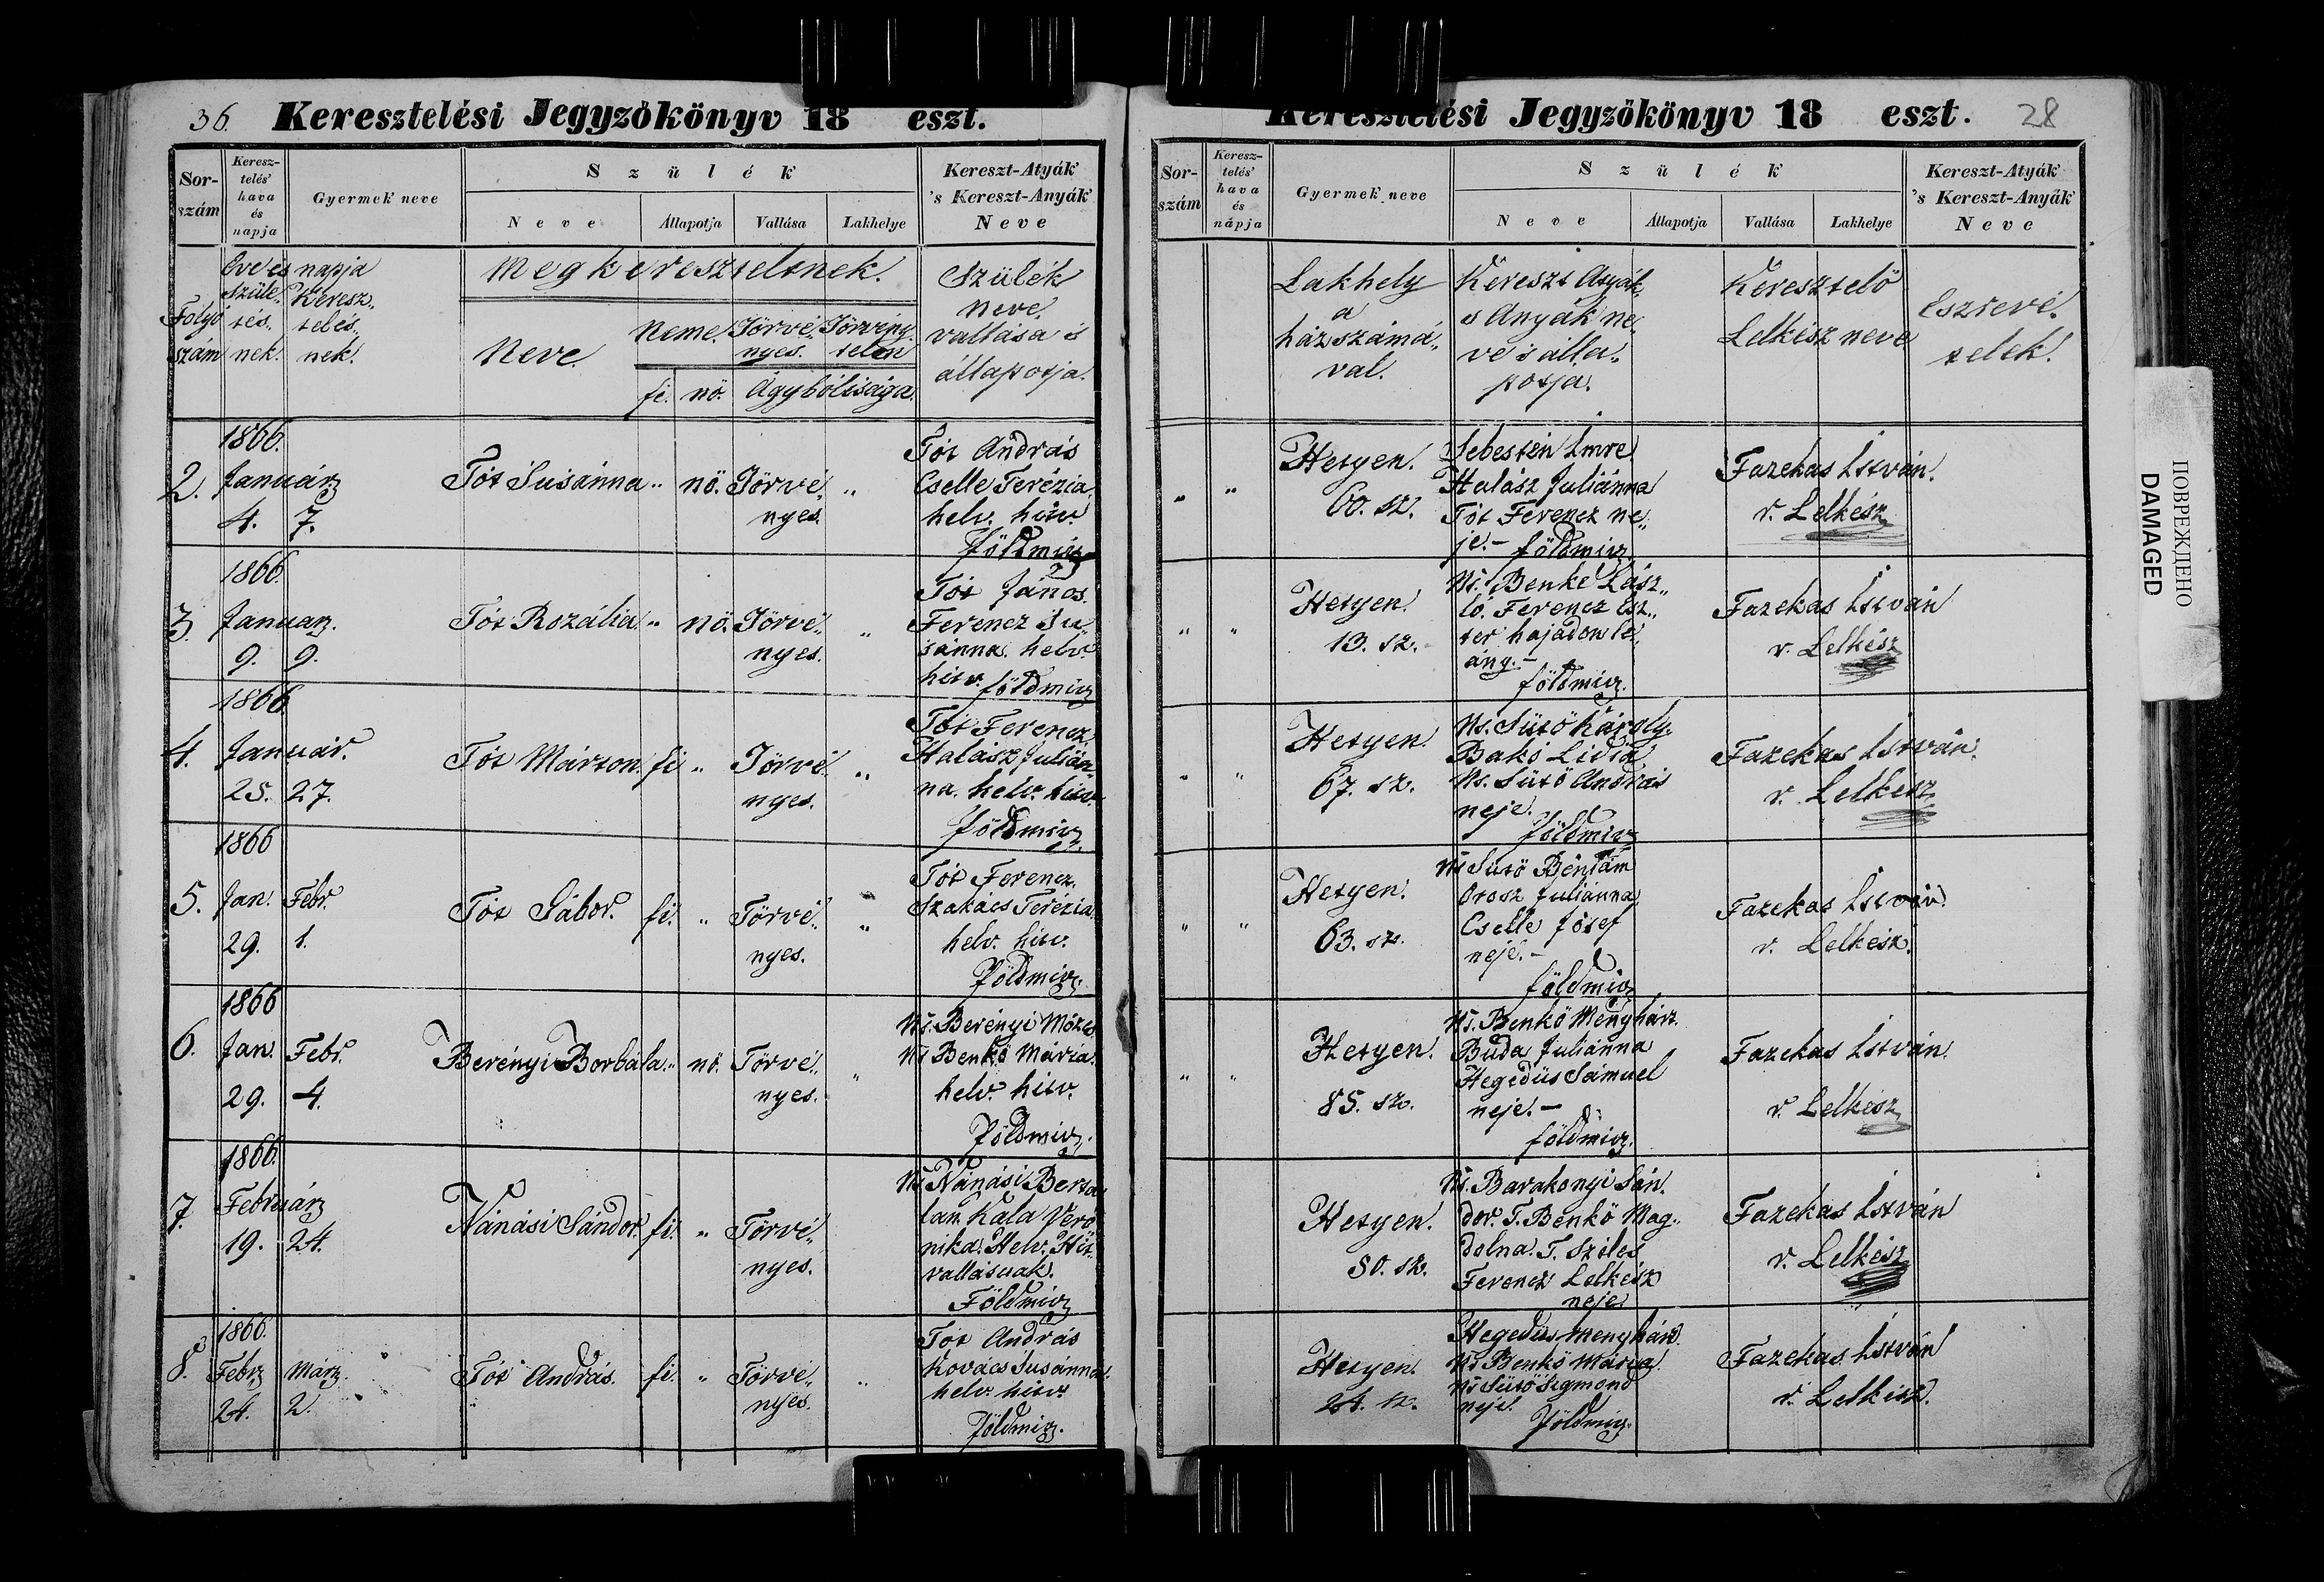 36. Keresztelési Jegyzőkönyv 18 eszt.
Sor-szám
Keresz-telés' hava és napja
Gyermek neve
Szülék
Neve
Állapotja
Vallása
Lakhelye
Kereszt-Atyák
's Kereszt-Anyák
Neve
Folyó szám
Eve és napja
Szüle„ tés„ nek.
Keresz„ telés„ nek.
Megkereszteltnek.
Neve.
Neme.
fi. nő.
Törvé„ nyes.
Törvény„ telen
Ágybóli sága.
Szülék
neve
vallása és
állapotja.
2.
1866.
Január
4. 7.
Tót Susánna „ nő. Törvé„ „
nyes.
Tót András
Cselle Terézia
helv. hitv.
földmiv
3.
1866.
Januar.
9. 9.
Tót Rozália. „ nő. Törvé„ „
nyes.
Tót János.
Ferencz Su„
sánna. helv.
hitv. földmiv
4.
1866
Január.
25. 27.
Tót Márton. fi „ Törvé„ „
nyes.
Tót Ferencz
Halász Julián„
na. helv. hitv.
földmiv
5.
1866
Jan. Febr.
29. 1.
Tót Gábor. fi. „ Törvé„ „
nyes.
Tót Ferencz.
Szakács Terézia
helv. hitv.
földmiv.
6.
1866
Jan. Febr.
29. 4.
Berényi Borbála. „ nő. Törvé„ „
nyes.
Ns. Berényi Mózes
Ns Benkő Mária.
helv. hitv.
földmiv.
7.
1866.
Február
19. 24.
Nánási Sándor. fi. „ Törvé„
nyes.
Ns Nánási Berta„
lan. Kala Vero
nika. Helv. Hit„
vallásuak.
Földmiv
8.
1866.
Febr Márz.
24. 2.
Tót András. fi. „ Törvé„ „
nyes.
Tót András
Kovács Susánna.
helv. hitv.
földmiv.
Keresztelési Jegyzőkönyv 18 eszt. 28
Sor-szám
Keresz-telés' hava és nápja
Gyermek neve
Szülék
Neve
Állapotja
Vallása
Lakhelye
Kereszt-Atyák
's Kereszt-Anyák
Neve
Lakhely
a
ház számá„
val.
Kereszt Atyák„
s Anyák ne„
ve 's álla„
potja.
Keresztelő
Lelkész neve
Eszrevé„
telek.
„ „
Hetyen.
60. sz.
Sebestén Imre
Halász Juliánna
Tót Ferencz ne„
je.– földmiv
Fazekas István.
r. Lelkész
„ „
Hetyen.
13. sz.
Ns. Benke Lász„
ló. Ferencz Esz„
ter hajadon le„
ány.–
földmiv.
Fazekas István
r. Lelkész
„ „
Hetyen.
67. sz.
Ns. Sütő Károly.
Bakó Lidia
Ns. Sütő András
neje.
földmiv
Fazekas István.
r. Lelkész
„ „
Hetyen.
63. sz.
Ns Sütő Béniám
Orosz Juliánna
Cselle Jósef
neje.–
földmiv
Fazekas István.
r. Lelkész.
„ „
Hetyen.
85. sz.
Ns. Benkő Menyhár.
Buda Juliánna
Hegedüs Sámuel
neje.–
földmiv.
Fazekas István.
r. Lelkész
Hetyen.
80. sz.
Ns. Barakonyi Sán„
dor. T. Benkő Mag„
dolna. T. Széles
Ferencz Lelkész
neje
Fazekas István
r. Lelkész
Hetyen.
24. sz.
Hegedüs Menyhár.
Ns Benkő Mária.
Ns Sütő Sigmond
neje.
földmiv.
Fazekas István
r. Lelkész.
ПОВРЕЖДЕНО
DAMAGED